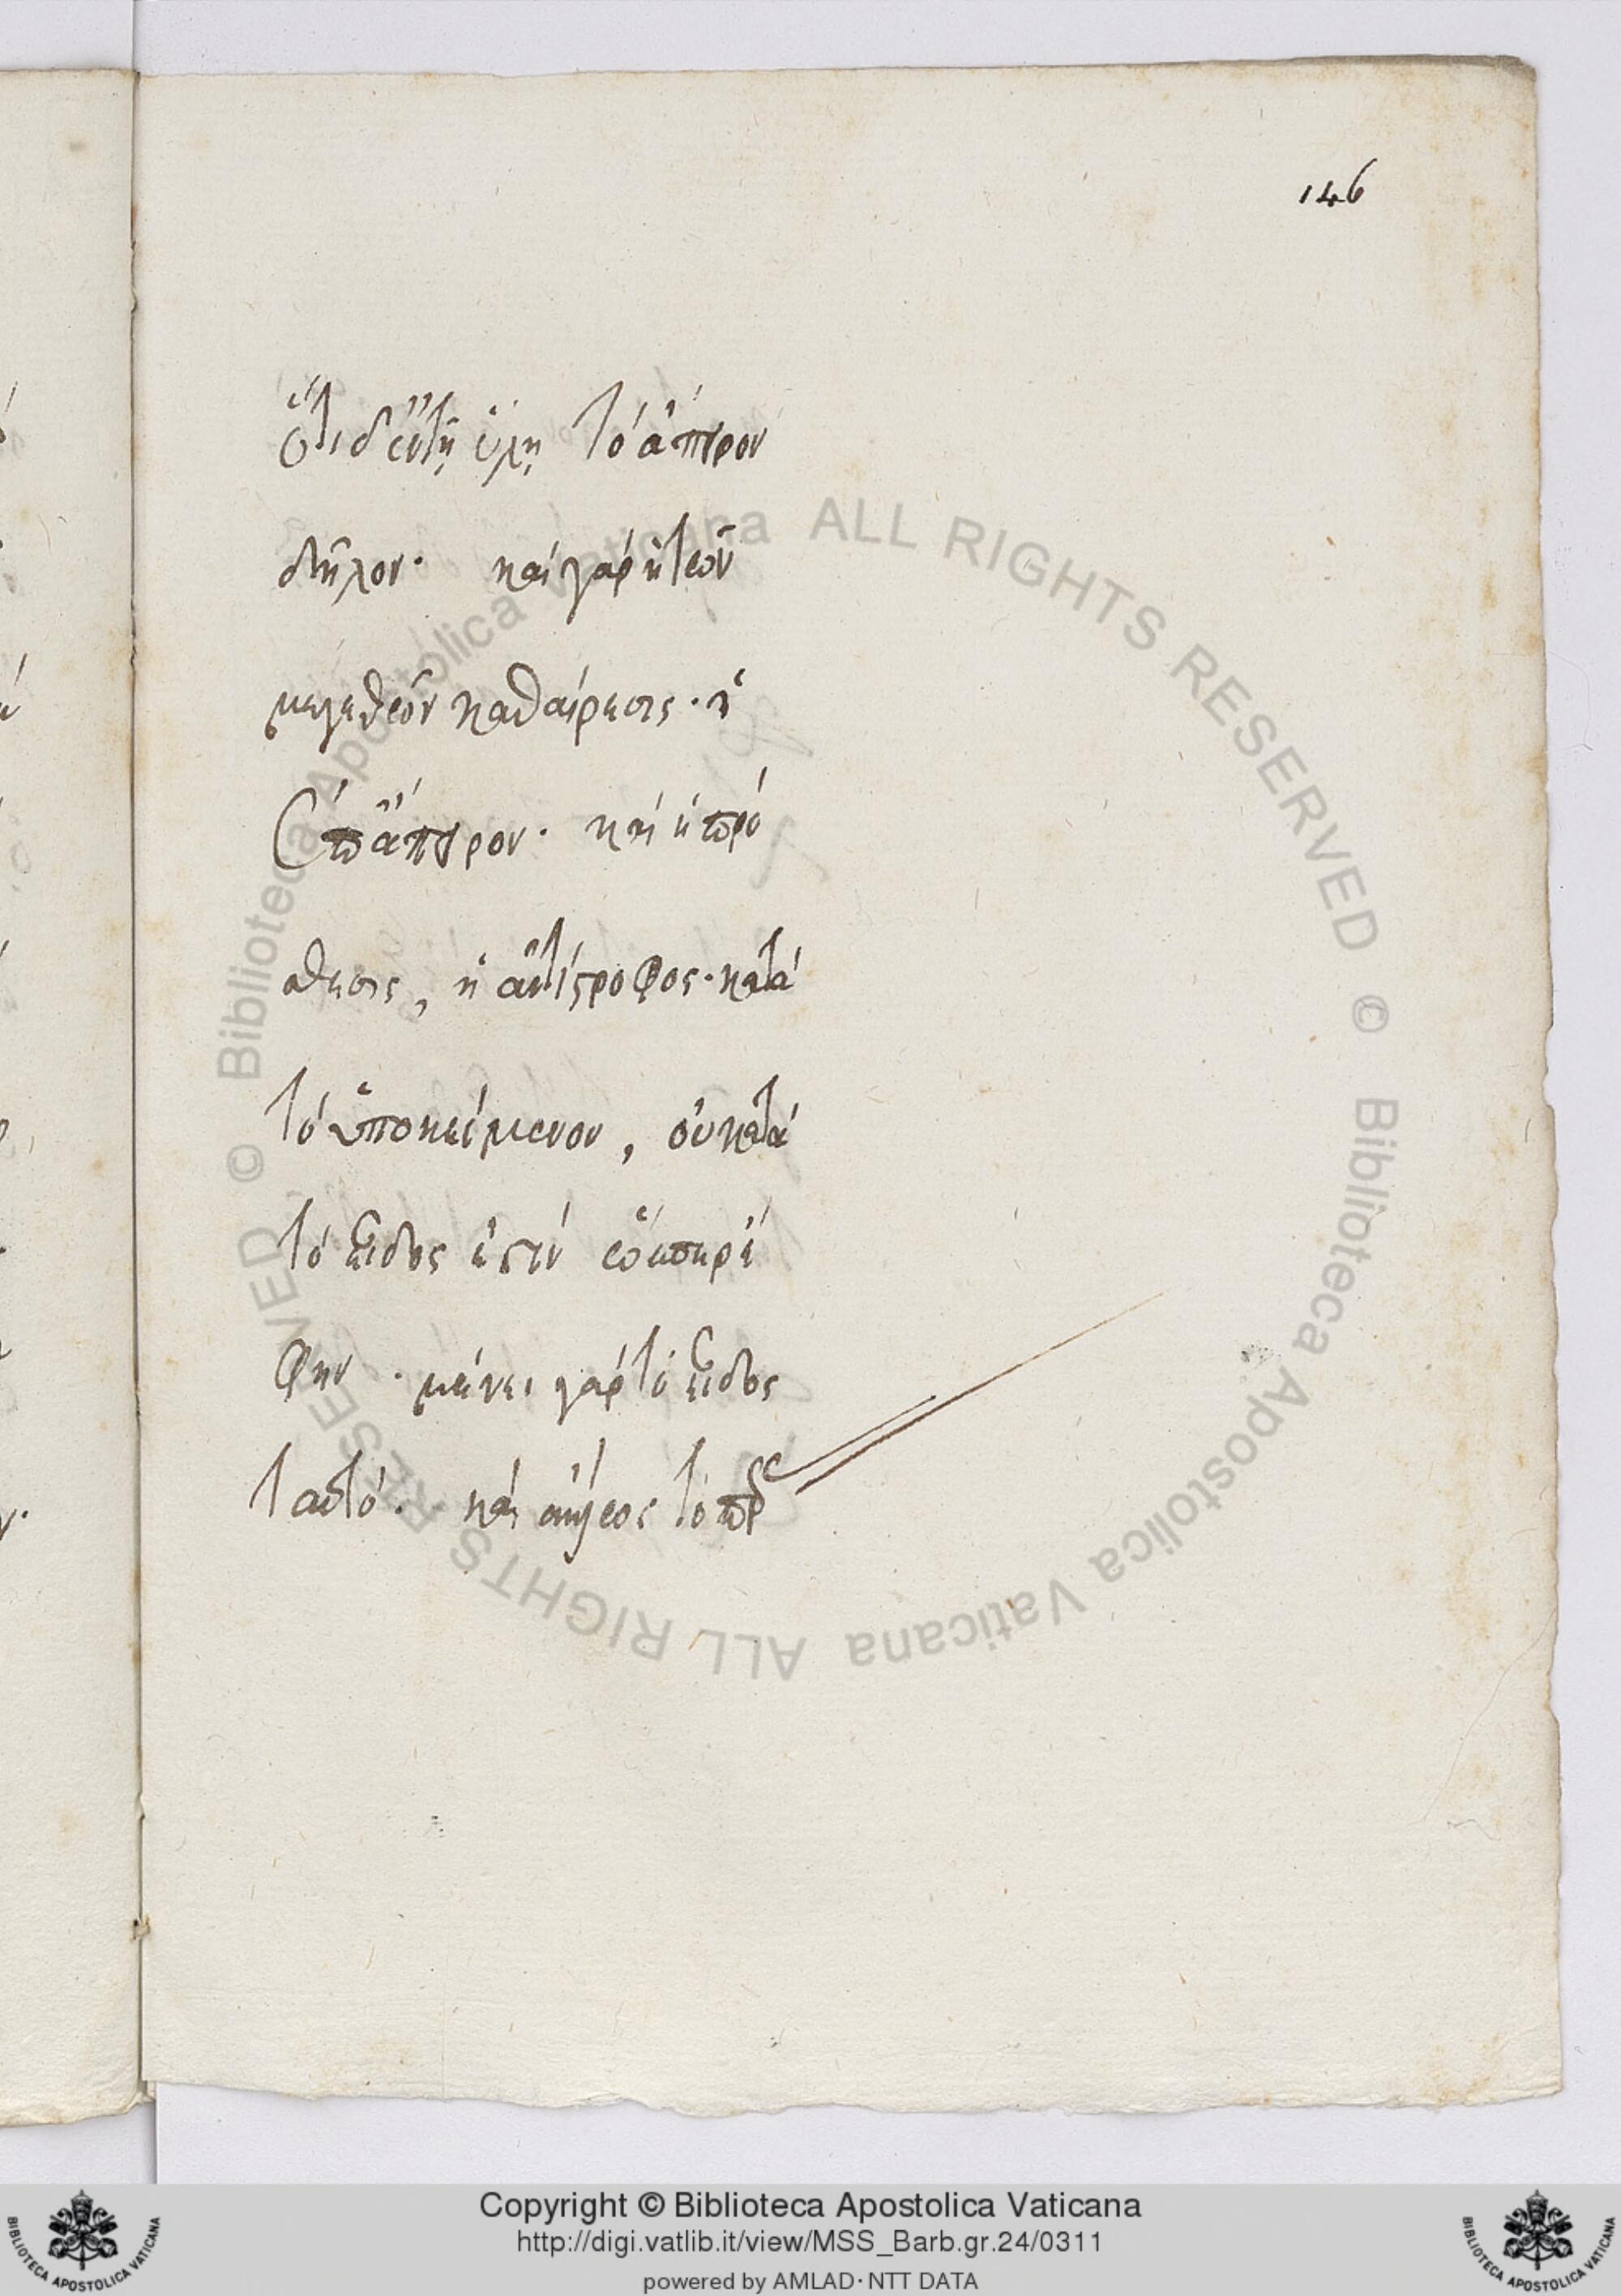 146
ὅτι δ' ἐν τῇ ὕλῃ τὸ ἄπειρον
δῆλον· καὶ γὰρ ἡ τῶν
μεγεθῶν καθαίρεσις· ἡ
ἐπ' ἄπειρον· καὶ ἡ πρό
σθεσις, ἡ ἀντίστροφος· κατὰ
τὸ ὑποκείμενον, οὐ κατὰ
τὸ εἶδος ἐστὶν
φην · μένει γὰρ τὸ εἶδος
ταυτό· καὶ
© Biblioteca Apostolica Vaticana ALL RIGHTS RESERVED © Biblioteca Apostolica Vaticana ALL RIGHTS RESERVED
Copyright © Biblioteca Apostolica Vaticana
http://digi.vatlib.it/view/MSS_Barb.gr.24/0311
powered by AMLAD·NTT DATA
BIBLIOTECA APOSTOLICA VATICANA
BIBLIOTECA APOSTOLICA VATICANA